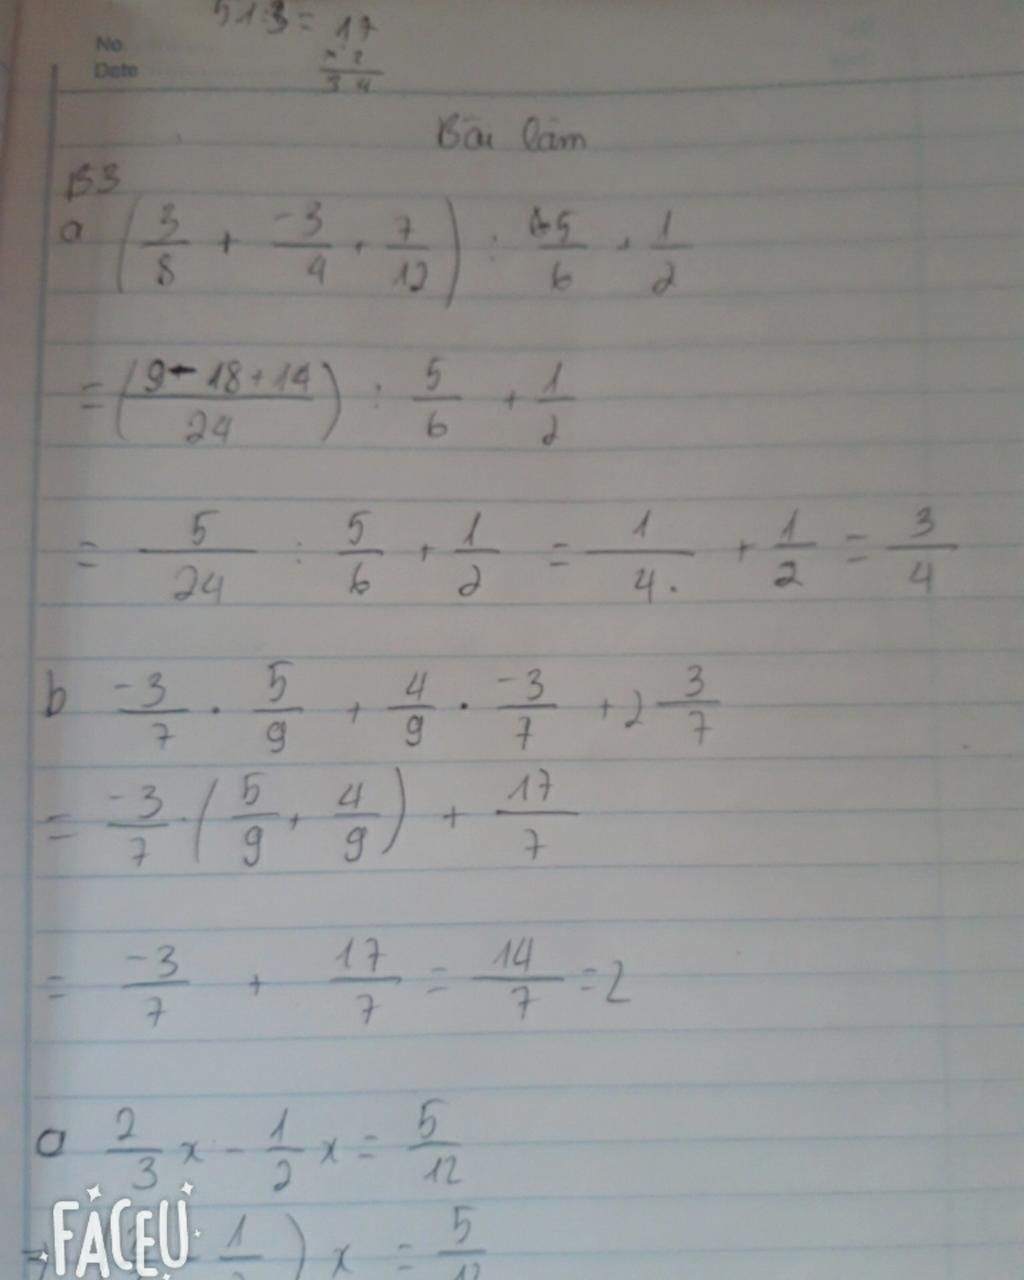 51:3 = 17
No.
Date
34
Bài làm
B3
a (3/8 + -3/4 + 7/12) : 5/6 + 1/2
= (9 - 18 + 14 / 24) : 5/6 + 1/2
= 5/24 : 5/6 + 1/2 = 1/4. + 1/2 = 3/4
b -3/7 . 5/9 + 4/9 . -3/7 + 2 3/7
= -3/7 . (5/9 + 4/9) + 17/7
= -3/7 + 17/7 = 14/7 = 2
a 2/3 x - 1/2 x = 5/12
1 ) x = 5/12
FACEU